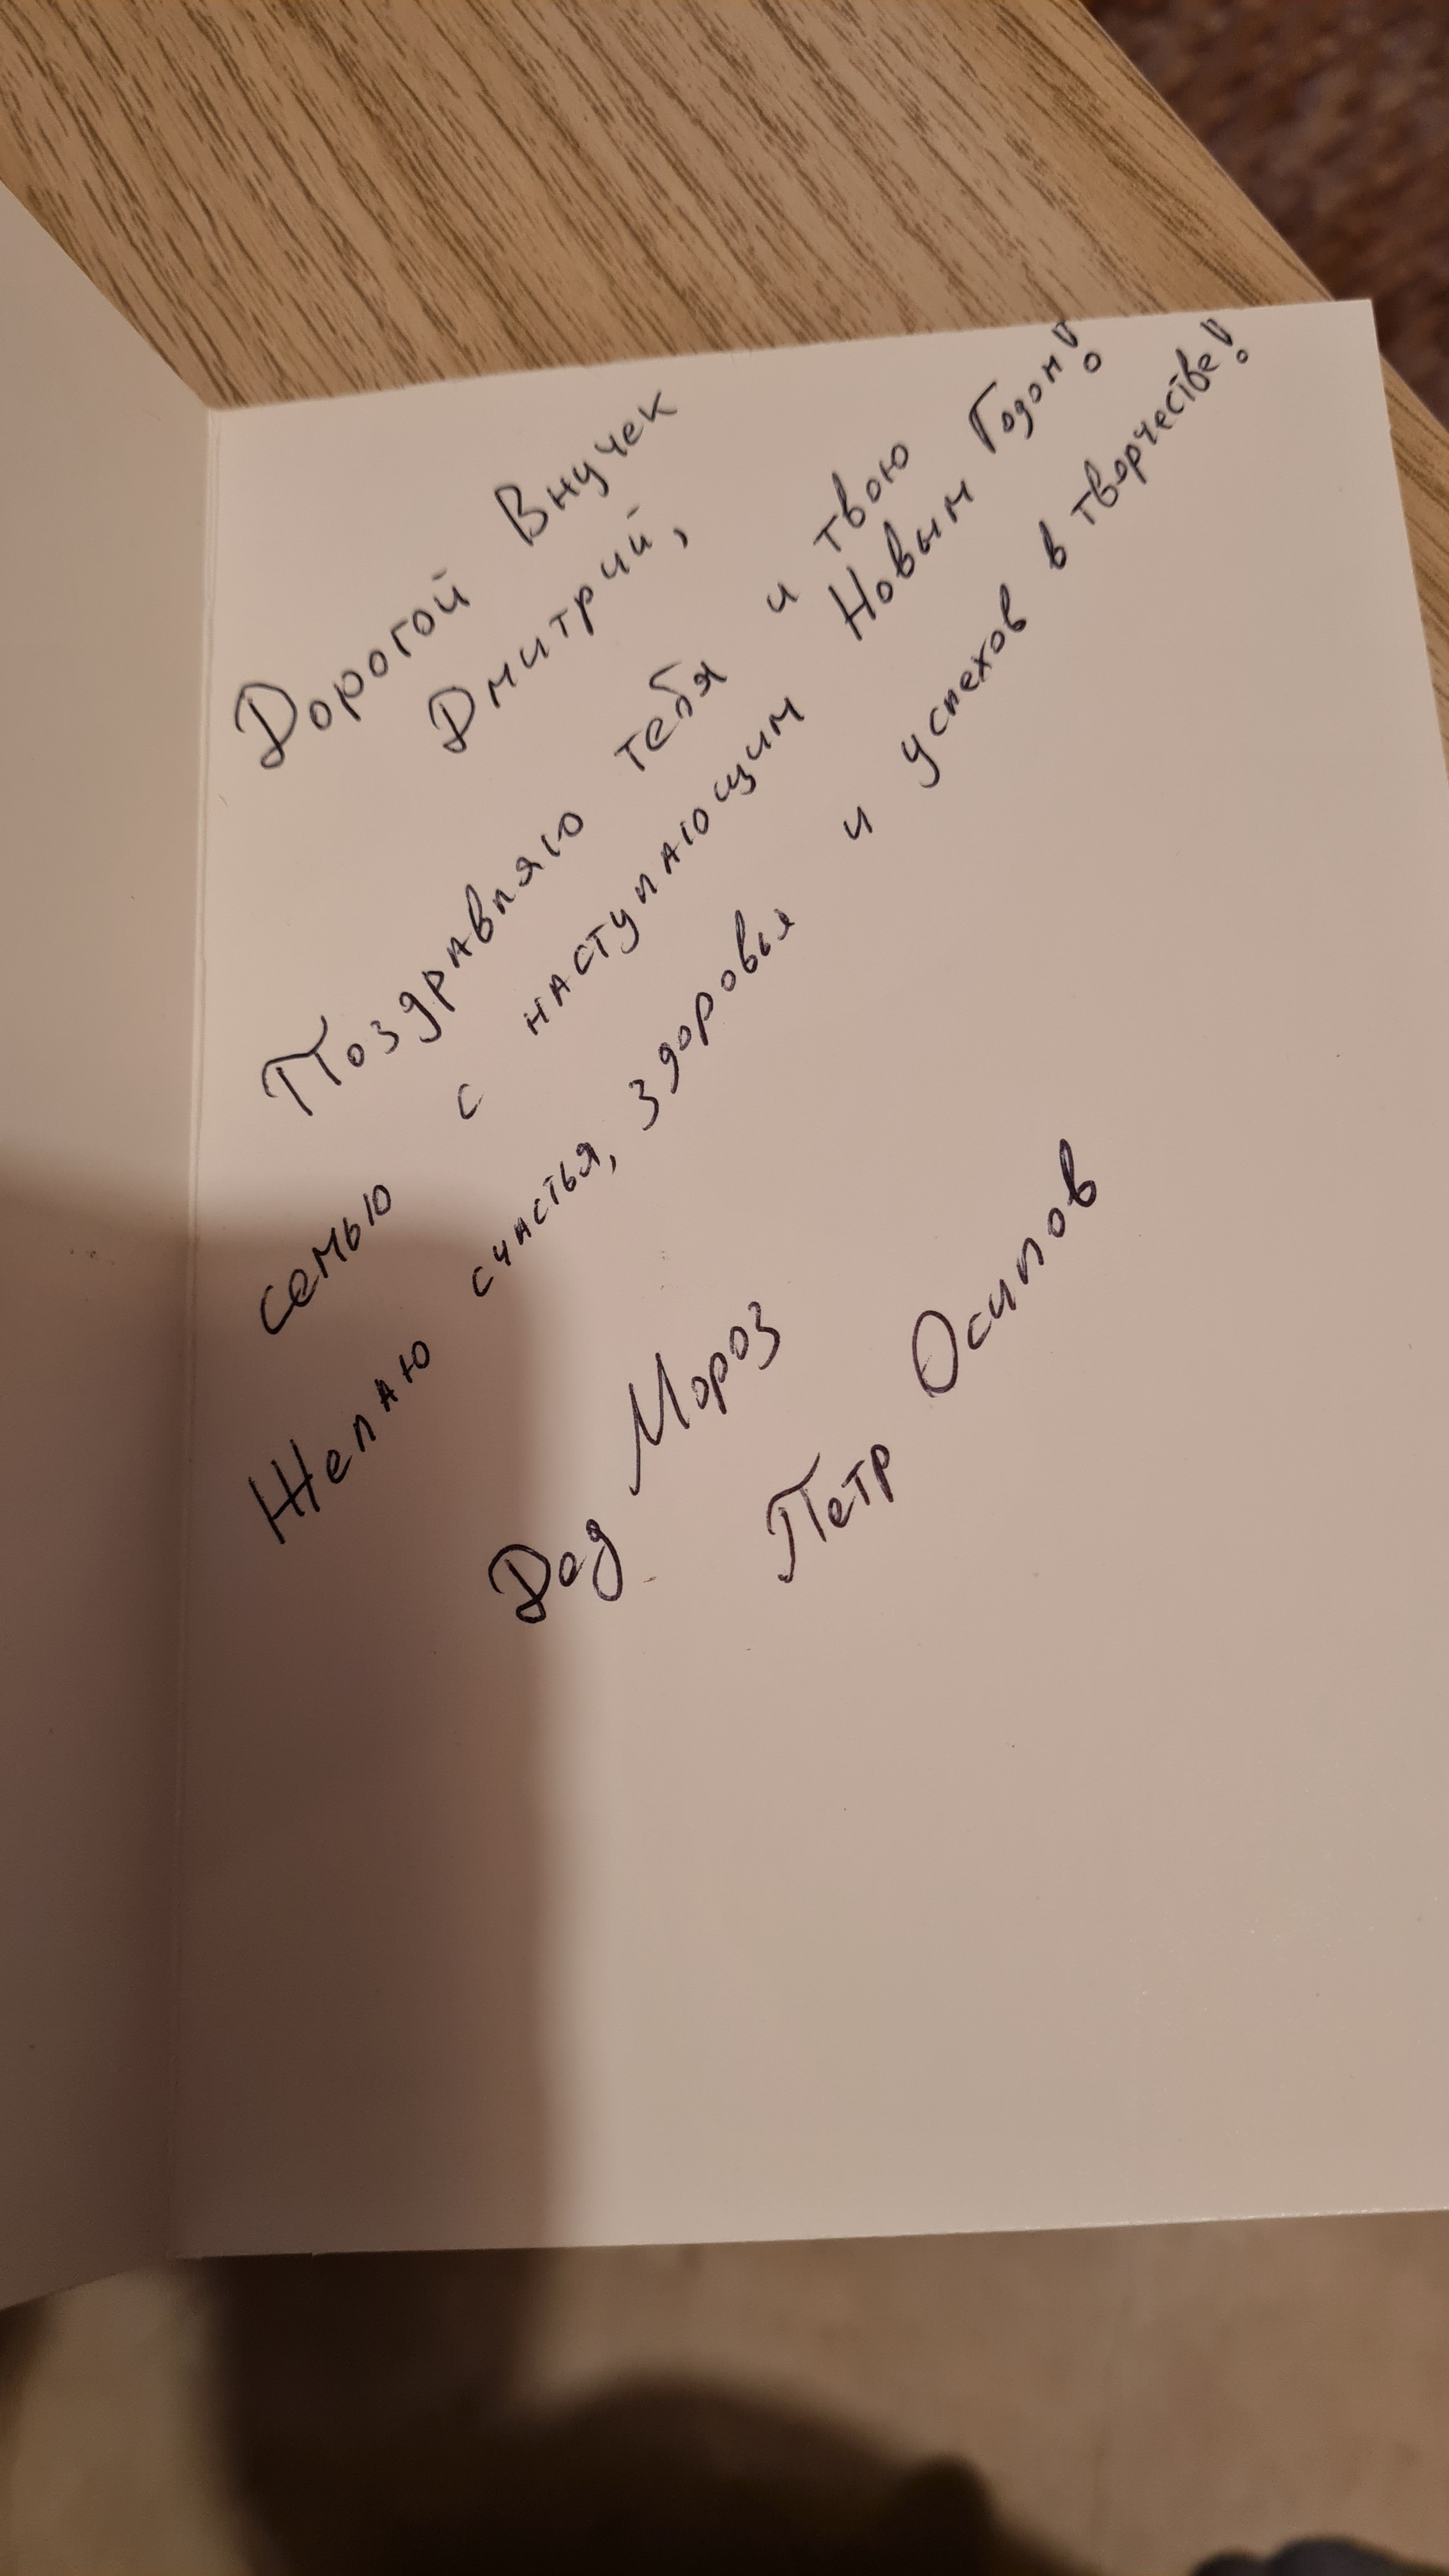 Дорогой Внучек
Дмитрий,
Поздравляю тебя и твою
семью с наступающим Новым Годом!
Желаю счастья, здоровья и успехов в творчестве!
Дед Мороз
Петр Осипов